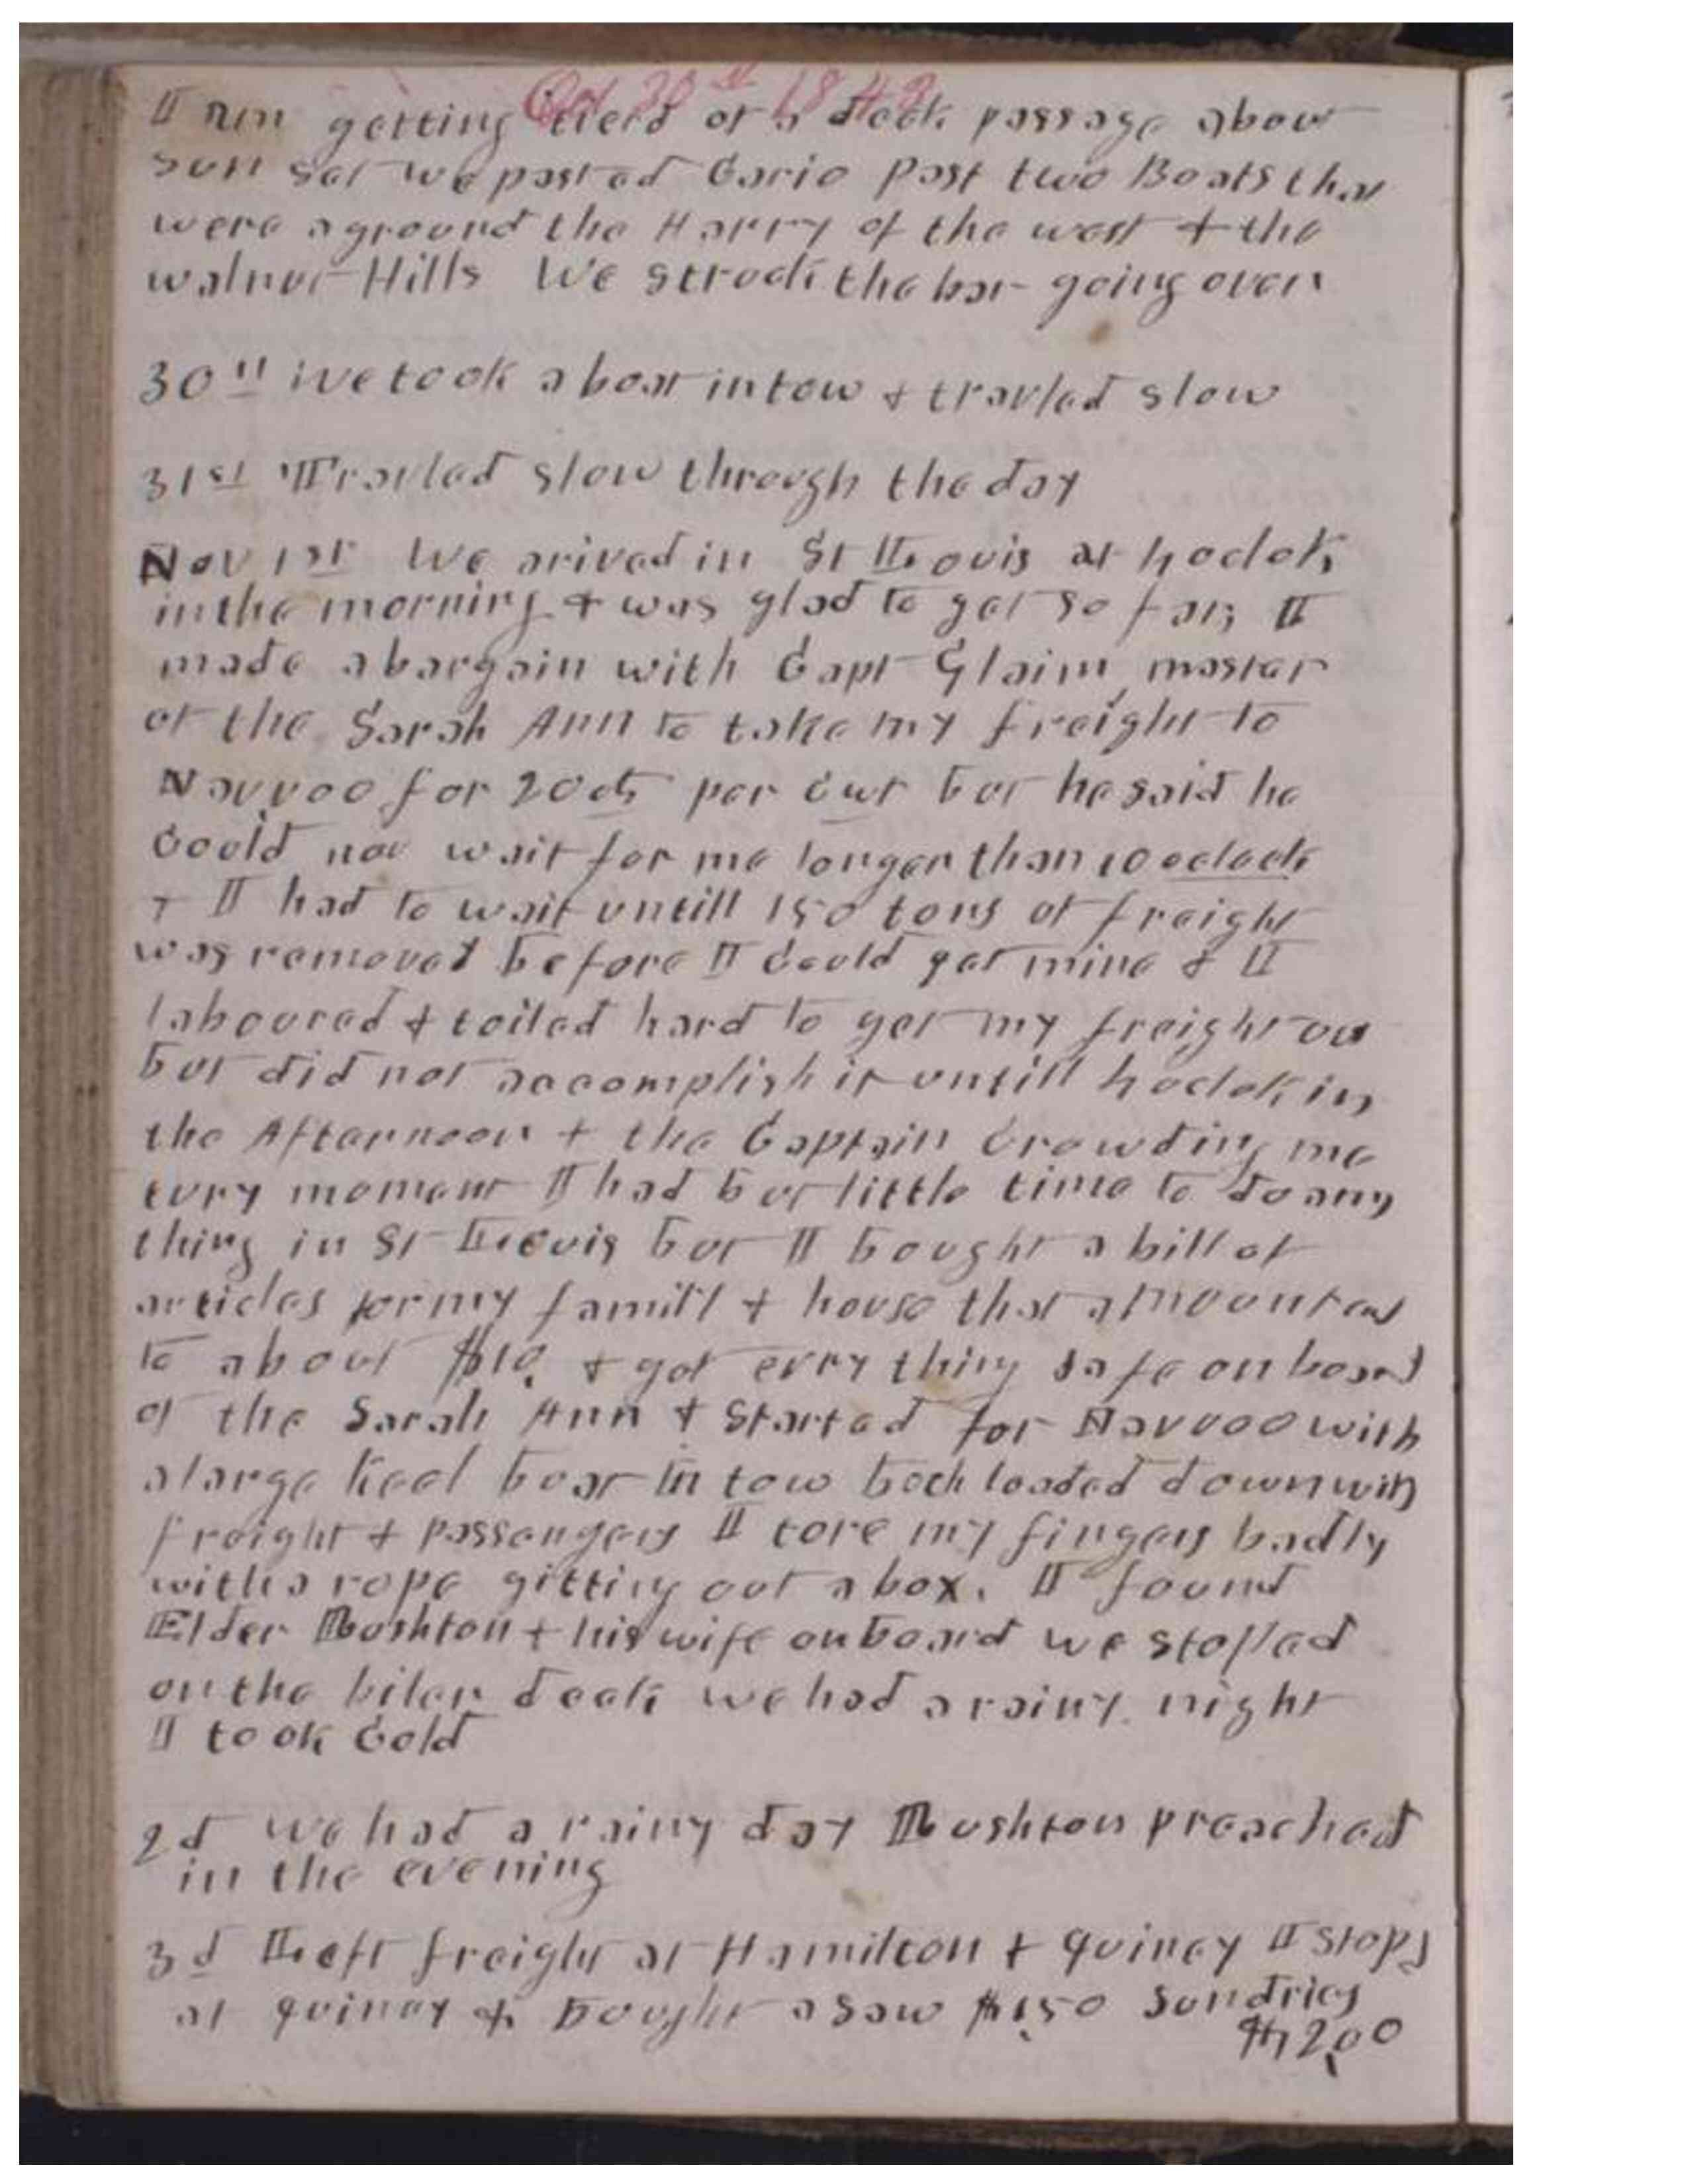 Oct 30th 1842
I am getting tierd of a deck passage about
sun set we passed Cario past two Boats that
were aground the Harry of the west & the
walnut Hills We struck the bar going over
30th we took a boat in tow & travled slow
31st Travled slow through the day
Nov 1st We arived in St Louis at 4 oclok
in the morning & was glad to get so far, I
made a bargain with Capt Glaim master
of the Sarah Ann to take my freight to
Nauvoo for 20cts per cwt but he said he
could not wait for me longer than 10 oclock
& I had to wait untill 150 tons of freight
was removed before I could get mine & I
laboured & toiled hard to get my freight out
but did not accomplish it untill 4 oclok in
the Afternoon & the Captain crowding me
evry moment I had but little time to do any
thing in St Louis but I bought a bill of
articles for my family & house that amounted
to about $10, & got evry thing safe on board
of the Sarah Ann & started for Nauvoo with
a large keel boat in tow boch loaded down with
freight & passengers I tore my fingers badly
with a rope gitting out a box. I found
Elder Rushton & his wife on board we stopled
on the biler deck we had a rainy night
I took cold
2d we had a rainy day Rushton preached
in the evening
3d Left freight at Hamilton & Quincy I stopd
at Quincy & bought a saw $1,50 sundries
$12,00